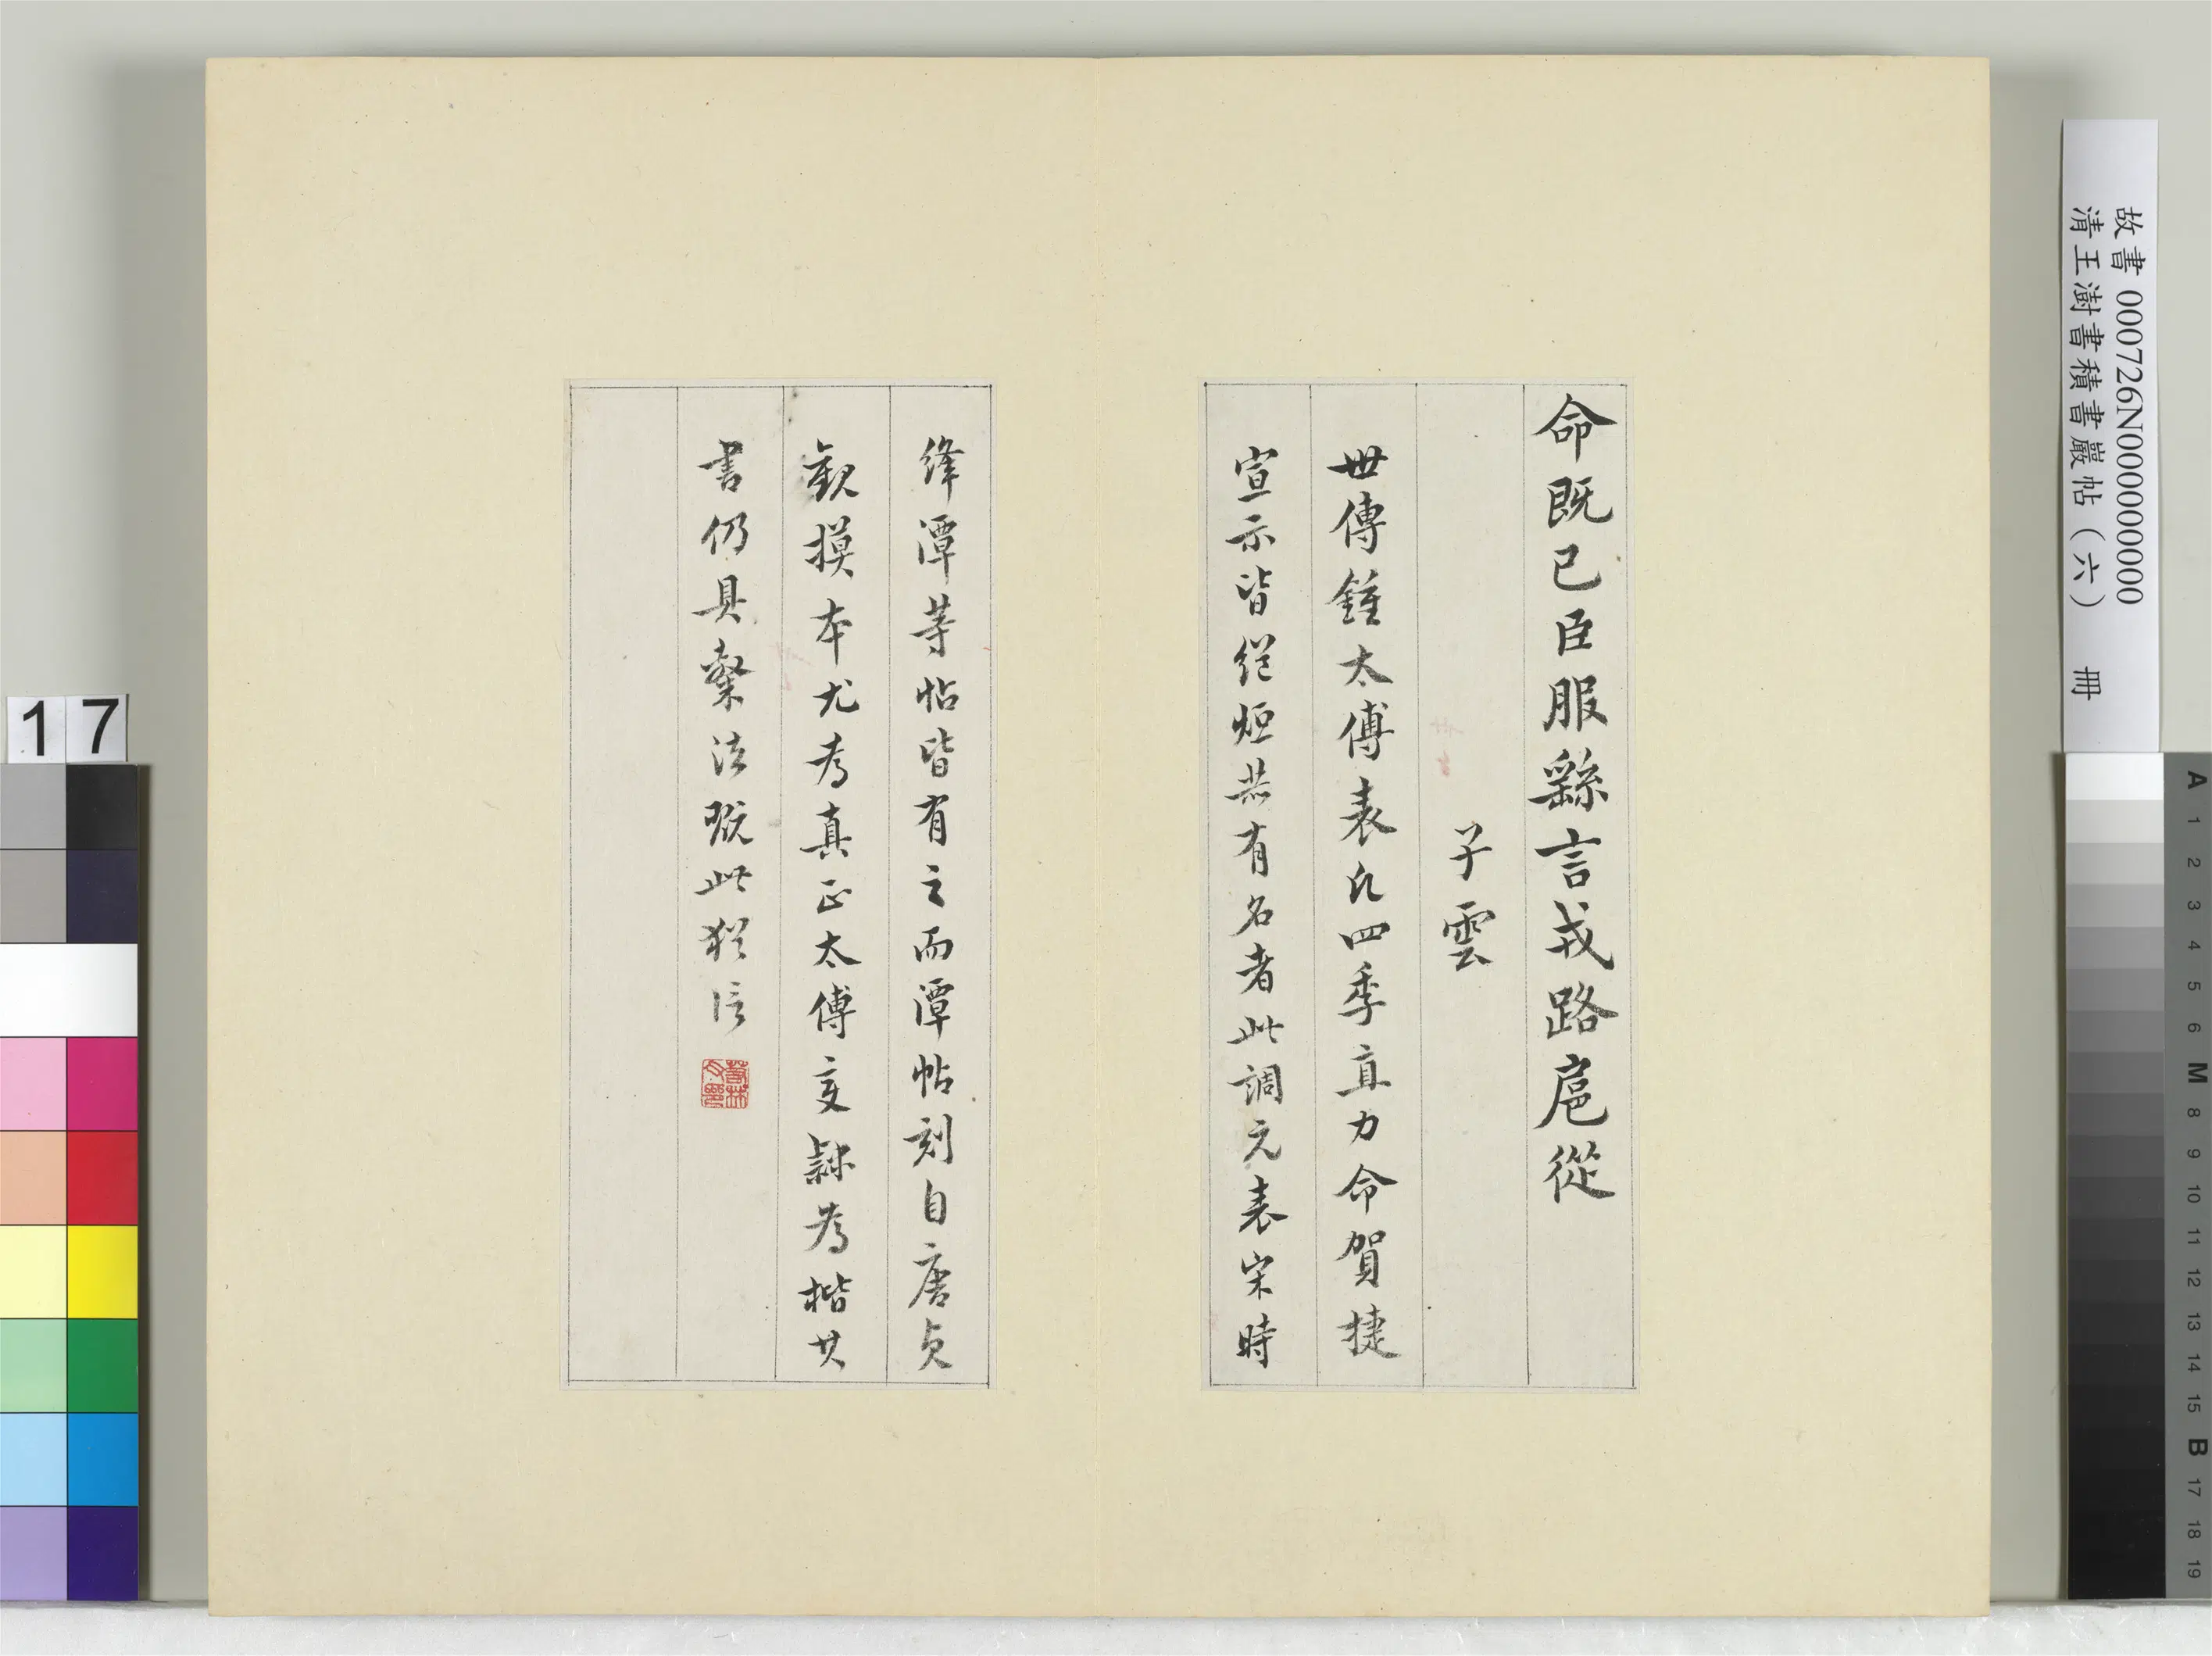 命既已臣服繇言戎路扈從
子雲
世傳鍾太傅表凡四季直力命賀捷
宣示皆烜共有名者此調元表宋時
絳潭等帖皆有之而潭帖刻自唐貞
觀摸本尤為真正太傅變隸為楷其
書仍具隸法觀此猶信
故書 000726N000000000
清王澍書積書巖帖(六) 冊
17
A 1 2 3 4 5 6 M 8 9 10 11 12 13 14 15 B 17 18 19